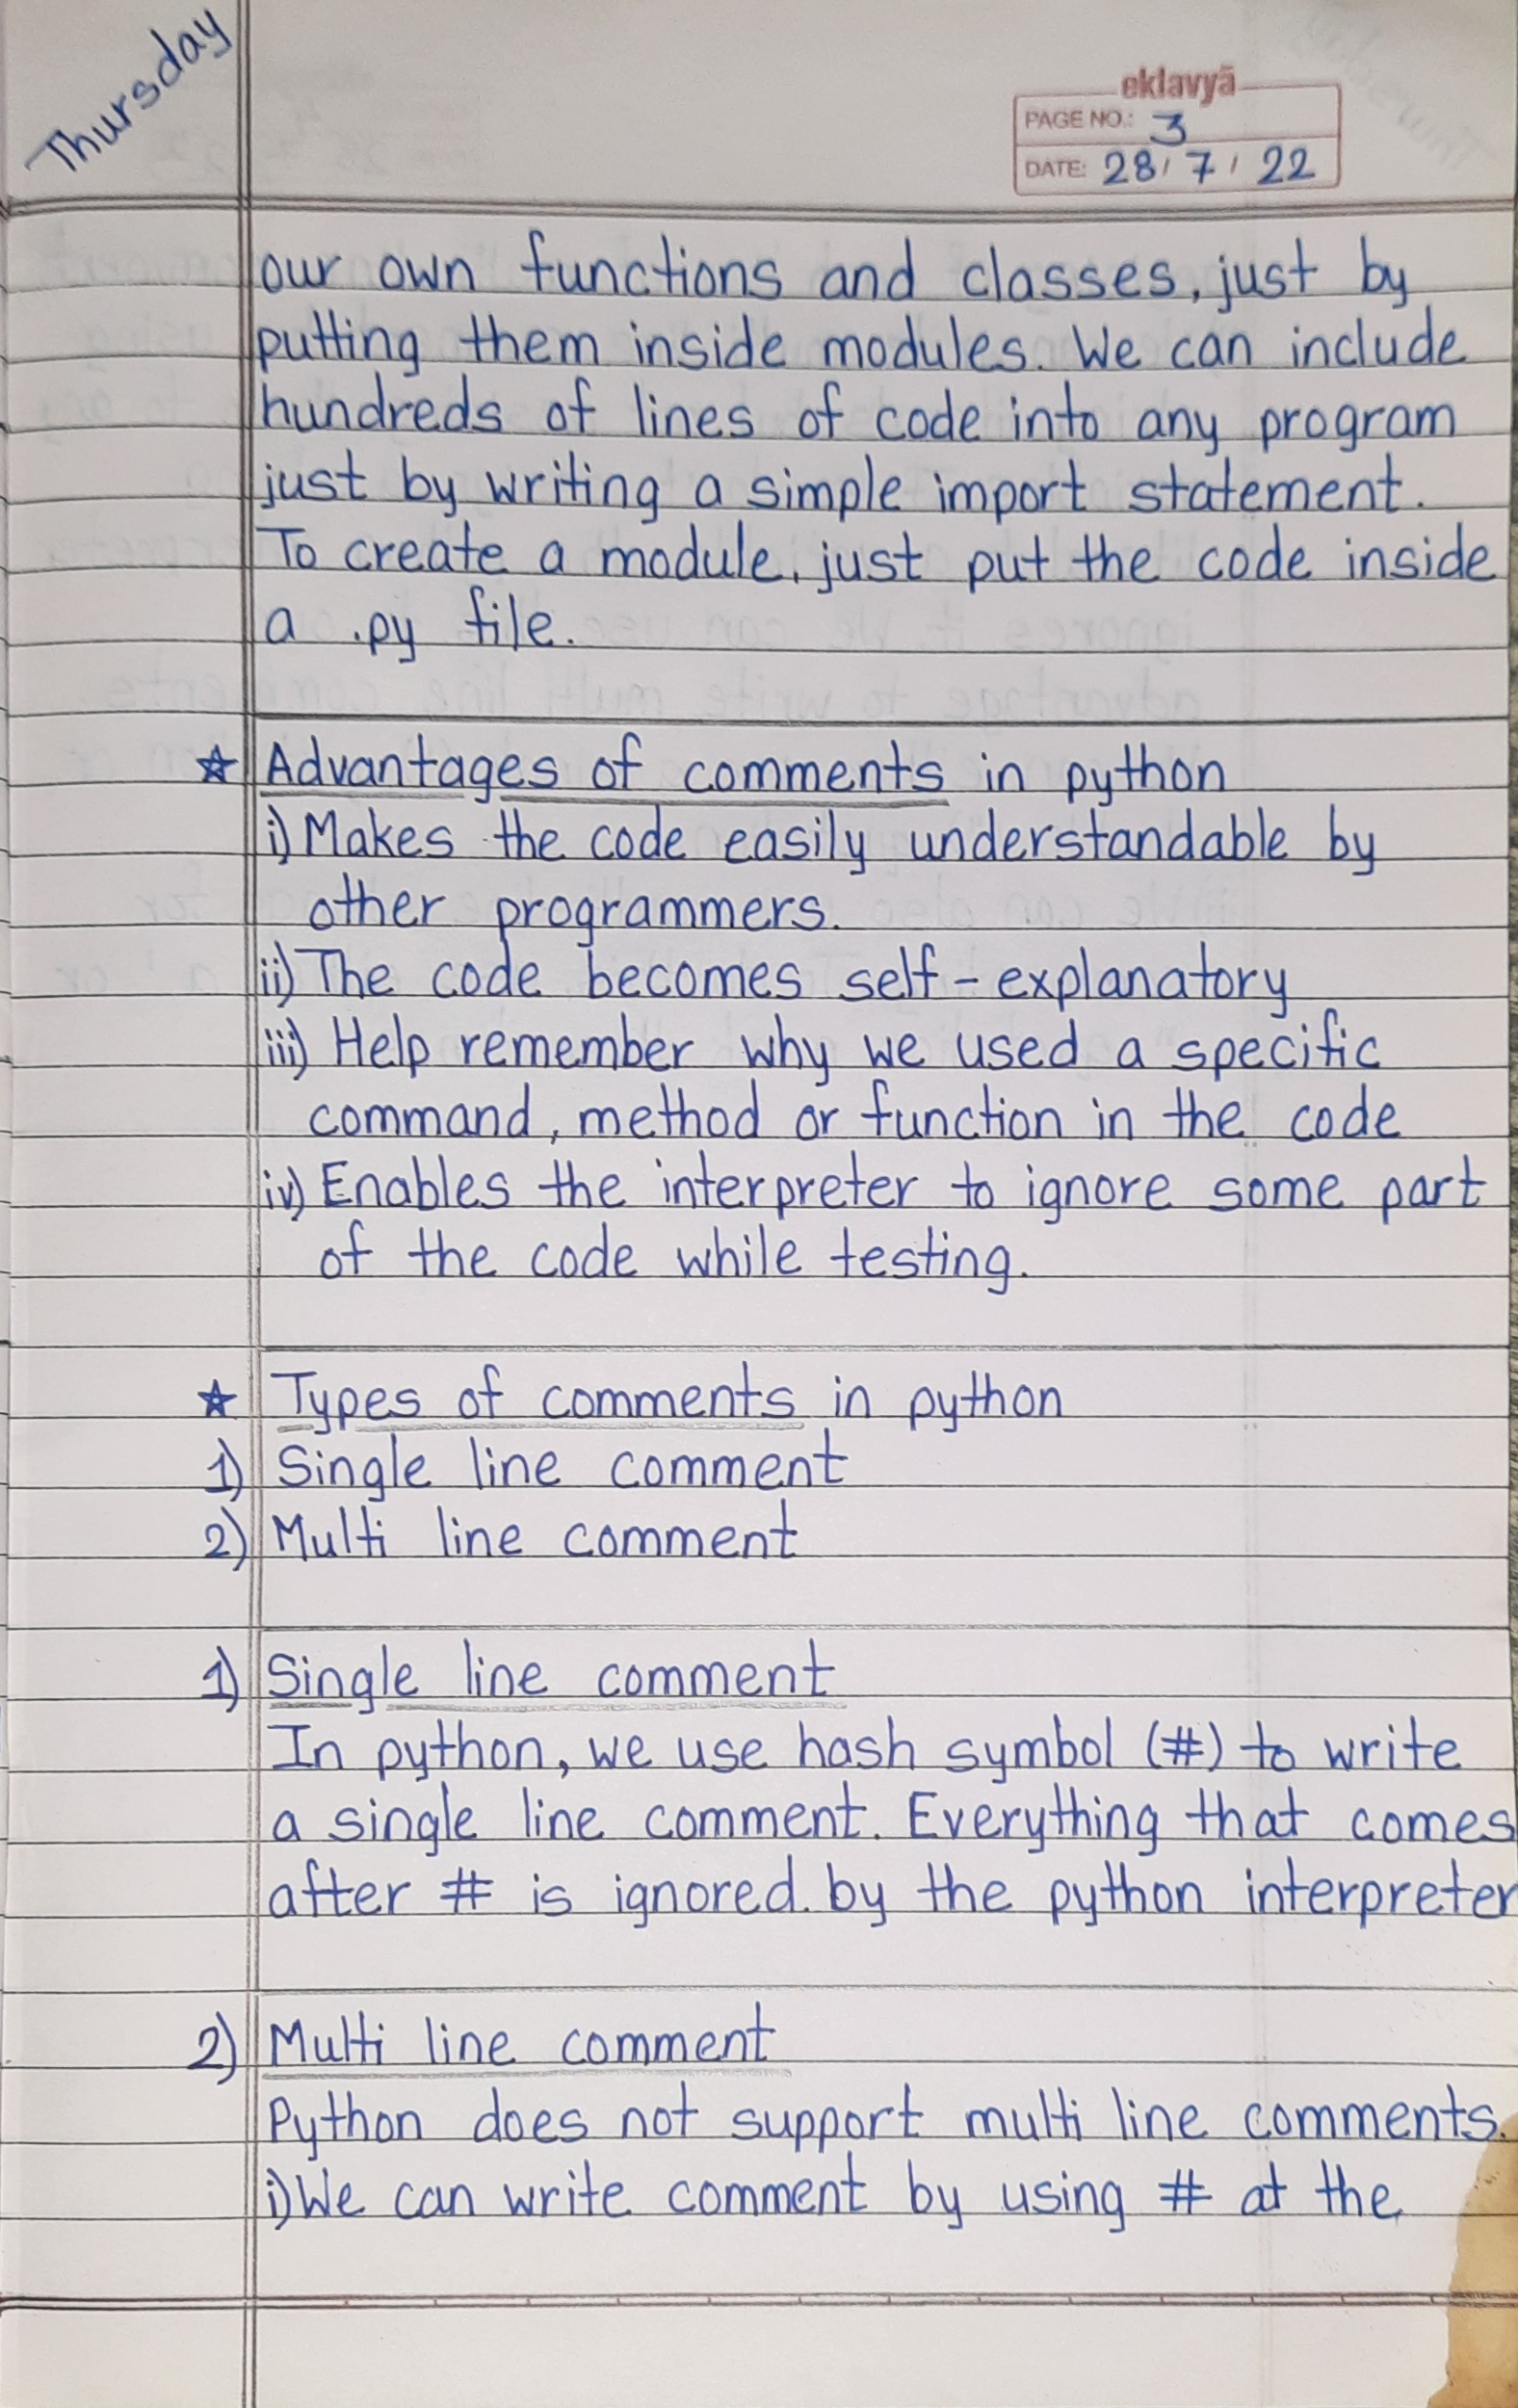 Thursday
eklavyā
PAGE NO.: 3
DATE: 28 / 7 / 22
our own functions and classes, just by
putting them inside modules. We can include
hundreds of lines of code into any program
just by writing a simple import statement.
To create a module, just put the code inside
a .py file.
☆ Advantages of comments in python
i) Makes the code easily understandable by
other programmers.
ii) The code becomes self-explanatory
iii) Help remember why we used a specific
command, method or function in the code
iv) Enables the interpreter to ignore some part
of the code while testing.
☆ Types of comments in python
1) Single line comment
2) Multi line comment
1) Single line comment
In python, we use hash symbol (#) to write
a single line comment. Everything that comes
after # is ignored by the python interpreter
2) Multi line comment
Python does not support multi line comments.
i) We can write comment by using # at the